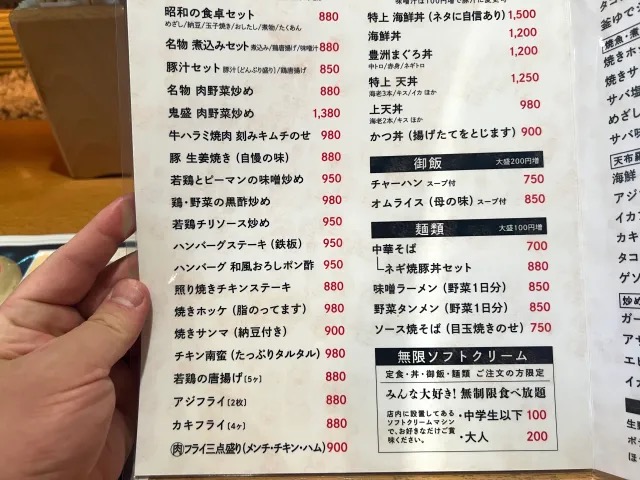 昭和の食卓セット 880
めざし/納豆/玉子焼き/おしたし/煮物/たくあん
名物 煮込みセット 煮込み/鶏唐揚げ/味噌汁 880
豚汁セット 豚汁(どんぶり盛り)/鶏唐揚げ 850
名物 肉野菜炒め 880
鬼盛 肉野菜炒め 1,380
牛ハラミ焼肉 刻みキムチのせ 980
豚 生姜焼き (自慢の味) 880
若鶏とピーマンの味噌炒め 950
鶏・野菜の黒酢炒め 980
若鶏チリソース炒め 950
ハンバーグステーキ (鉄板) 950
ハンバーグ 和風おろしポン酢 950
照り焼きチキンステーキ 880
焼きホッケ (脂のってます) 980
焼きサンマ (納豆付き) 900
チキン南蛮 (たっぷりタルタル) 980
若鶏の唐揚げ [5ヶ] 880
アジフライ [2枚] 880
カキフライ [4ヶ] 880
㊥フライ三点盛り(メンチ・チキン・ハム) 900
特上 海鮮丼 (ネタに自信あり) 1,500
海鮮丼 1,200
豊洲まぐろ丼 1,200
中トロ/赤身/ネギトロ
特上 天丼 1,250
海老3本/キス/イカ ほか
上天丼 980
海老2本/キス ほか
かつ丼 (揚げたてをとじます) 900
御飯 大盛200円増
チャーハン スープ付 750
オムライス (母の味) スープ付 850
麺類 大盛100円増
中華そば 700
└ネギ焼豚丼セット 880
味噌ラーメン (野菜1日分) 850
野菜タンメン (野菜1日分) 850
ソース焼そば (目玉焼きのせ) 750
無限ソフトクリーム
定食・丼・御飯・麺類 ご注文の方限定
みんな大好き! 無制限食べ放題
店内に設置してある
ソフトクリームマシン
で、お好きなだけご賞
味ください。
・中学生以下 100
・大人 200
焼魚・煮
焼きホ
焼きサ
サバ塩
めざし
サバ味
天布羅
海鮮
アジ
イカ
カキ
タコ
ゲソ
炒め
ガー
アサ
エビ
イカ